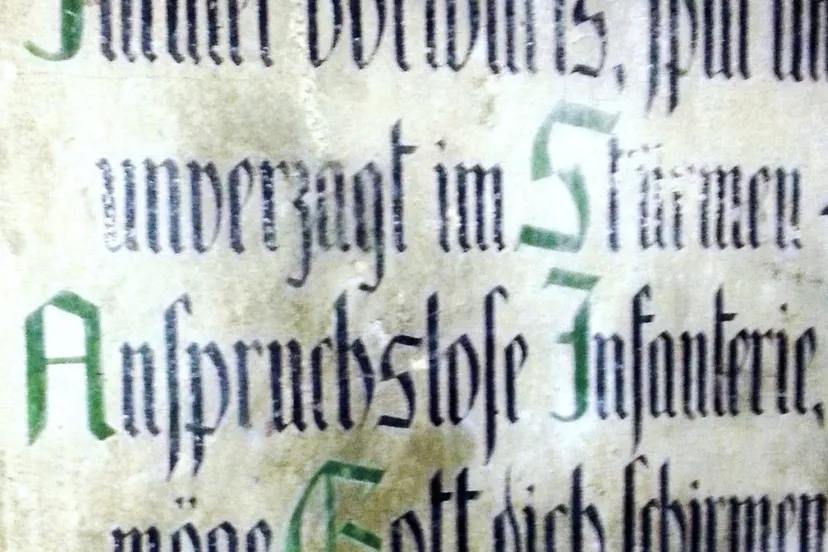 Immer vorwärts,
unverzagt im Stürmen
Anspruchslose Infanterie,
möge Gott dich schirmen